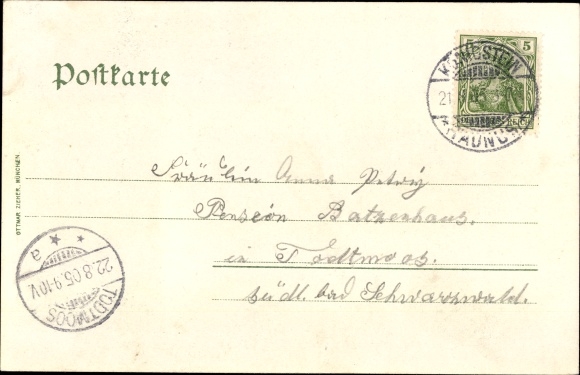 Postkarte
5 5
KÖNIGSTEIN
21
* TAUNUS *
OTTMAR ZIEHER, MÜNCHEN
Fräulein Anna Petry
Pension Batzenhaus.
in Todtmoos.
südl. bad Schwarzwald.
* * a
22.8.05.9-10V.
TODTMOOS